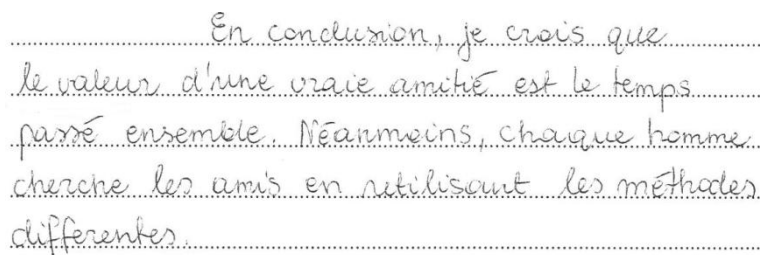 En conclusion, je crois que
le valeur d'une vraie amitié est le temps
passé ensemble. Néanmoins, chaque homme
cherche les amis en utilisant les méthodes
differentes.